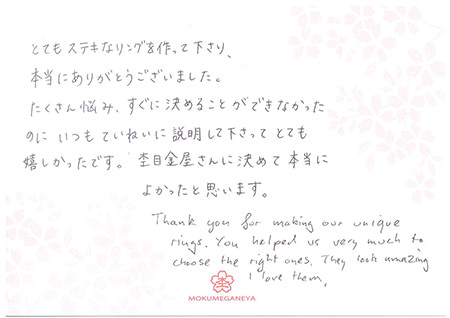 とてもステキなリングを作って下さり、
本当にありがとうございました。
たくさん悩み、すぐに決めることができなかった
のに いつも ていねいに 説明して下さって とても
嬉しかったです。 杢目金屋さんに決めて 本当に
よかったと思います。
Thank you for making our unique
rings. You helped us very much to
choose the right ones. They look amazing
I love them.
MOKUMEGANEYA